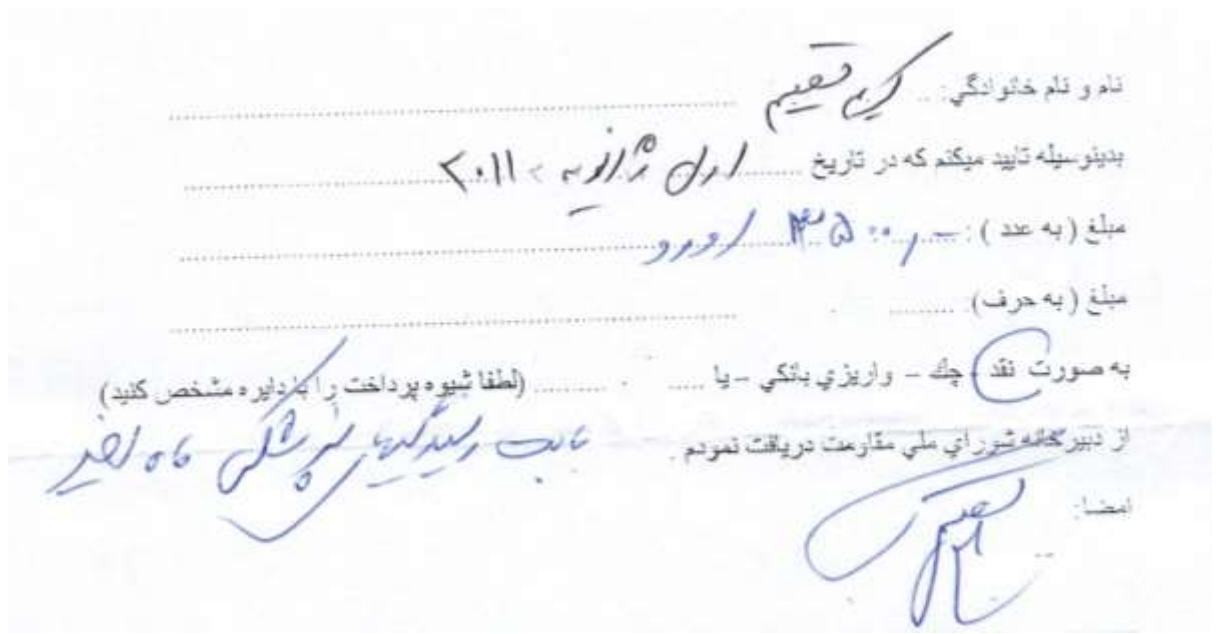 نام و نام خانوادگي: .. کریم قصیم
بدينوسيله تاييد ميکنم که در تاريخ ........ اول ژانویه ۲۰۱۱
مبلغ ( به عدد ) : ........ ۳۵۰۰ اورو
مبلغ ( به حرف): ........
به صورت نقد - چك - واريزي بانکي - يا ..... (لطفا شيوه پرداخت را با دايره مشخص کنيد)
از دبيرخانه شوراي ملي مقاومت دريافت نمودم .
بابت رسیدگیهای پزشکی ۶ ماه اخیر
امضا: